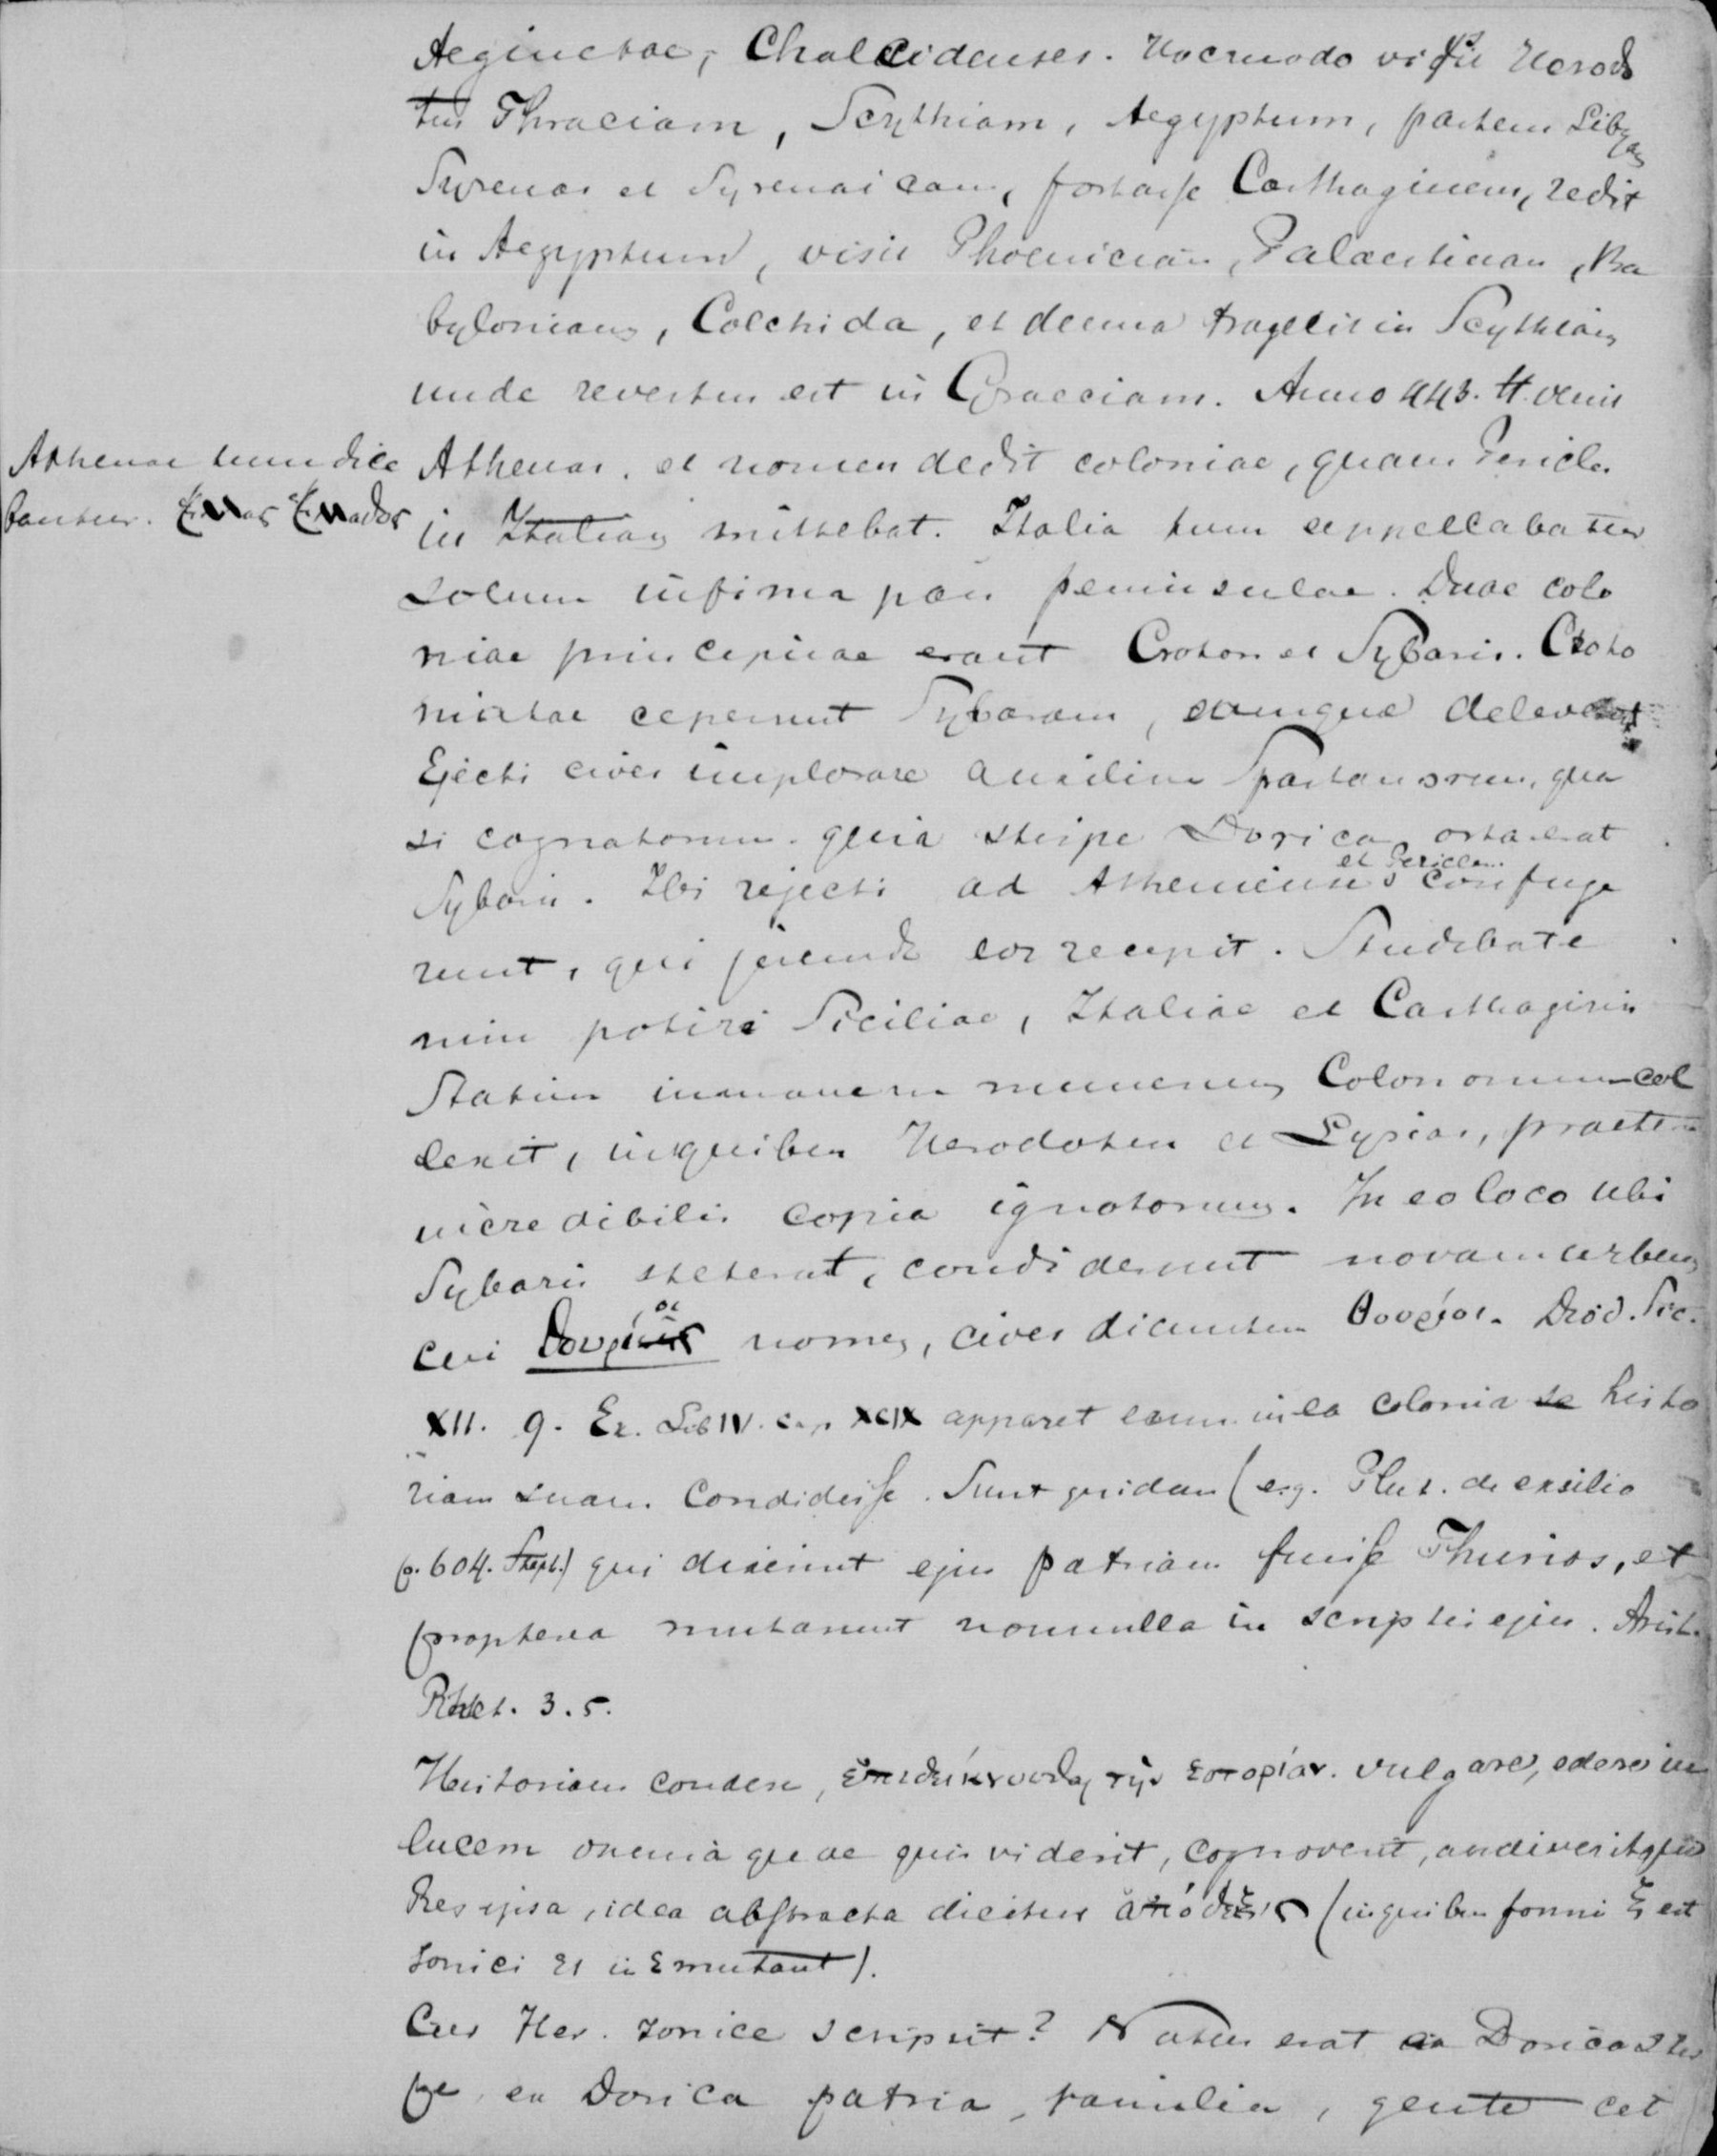 Aeginetae, Chalcidenses. Hocmodo visit Herodo
tus Thraciam, Scythiam, Aegyptum, partem Libyae
Cyrenas et Cyrenaicam, fortasse Carthaginem, redit
in Aegyptum, visit Phoeniciam, Palaestinam, Ba
byloniam, Colchida, et denuo
in Scythiam
unde reversus est in Graeciam. Anno 443. H. venit
Athenae tum dice
bantur. Ἑλλας Ἑλλαδος
Athenas, et nomen dedit coloniae, quam Pericles
in Italiam mittebat. Italia tum appellabatur
solum infima pars peninsulae. Duae colo
niae principuae erant Croton et Sybaris. Croto
niatae ceperunt Sybaram, eamque deleverunt
Ejecti cives implorare auxilium Spartanorum, qua
si cognatorum. quia stirpe Dorica orta erat
Sybaris. Ibi rejecti ad Athenienses et Periclem confuge
runt, qui jucunde eos recepit. Studebat e
nim potiri Siciliae, Italiae et Carthaginis
Statim immanem numerum Colonorum col
lexit, in quibus Herodotum et Lysias, praeterea
incredibilis copia ignotorum. In eo loco ubi
Sybaris steterat, condiderunt novam urbem
cui Θουριοι nomen, cives dicuntur Θουριοι. Diod. Sic.
XII. 9. Ex. Lib IV. cap. XCIX apparet eum in ea colonia se histo
riam suam condidisse. Sunt quidam (e.g. Plut. de exsilio
p. 604. Steph.) qui dicunt ejus patriam fuisse Thurios, et
propterea mutarunt nonnulla in scriptis ejus. Arist.
Rhet. 3.5.
Historiam condere, ἐπιδείκνυσθαι τὴν ἱστορίαν. vulgare, edere in
lucem omnia quae quis viderit, cognoverit, audiveritque
Res ipsa, idea abstracta dicitur ἀπόδεξις (in quibus formis ξ est
Ionici ει in ε mutant).
Cur Her. Ionice scripsit? Natus erat ex Dorica stir
pe, ex Dorica patria, familia, gente cet